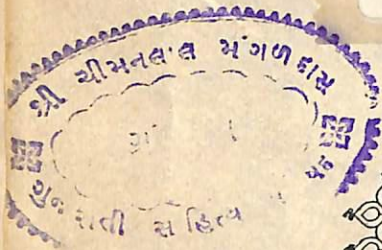 શ્રી ચીમનલાલ મંગળદાસ
ગુજરાતી સાહિત્ય